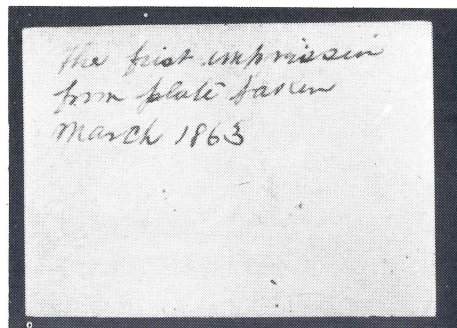 The first impression
from plate taken
March 1863